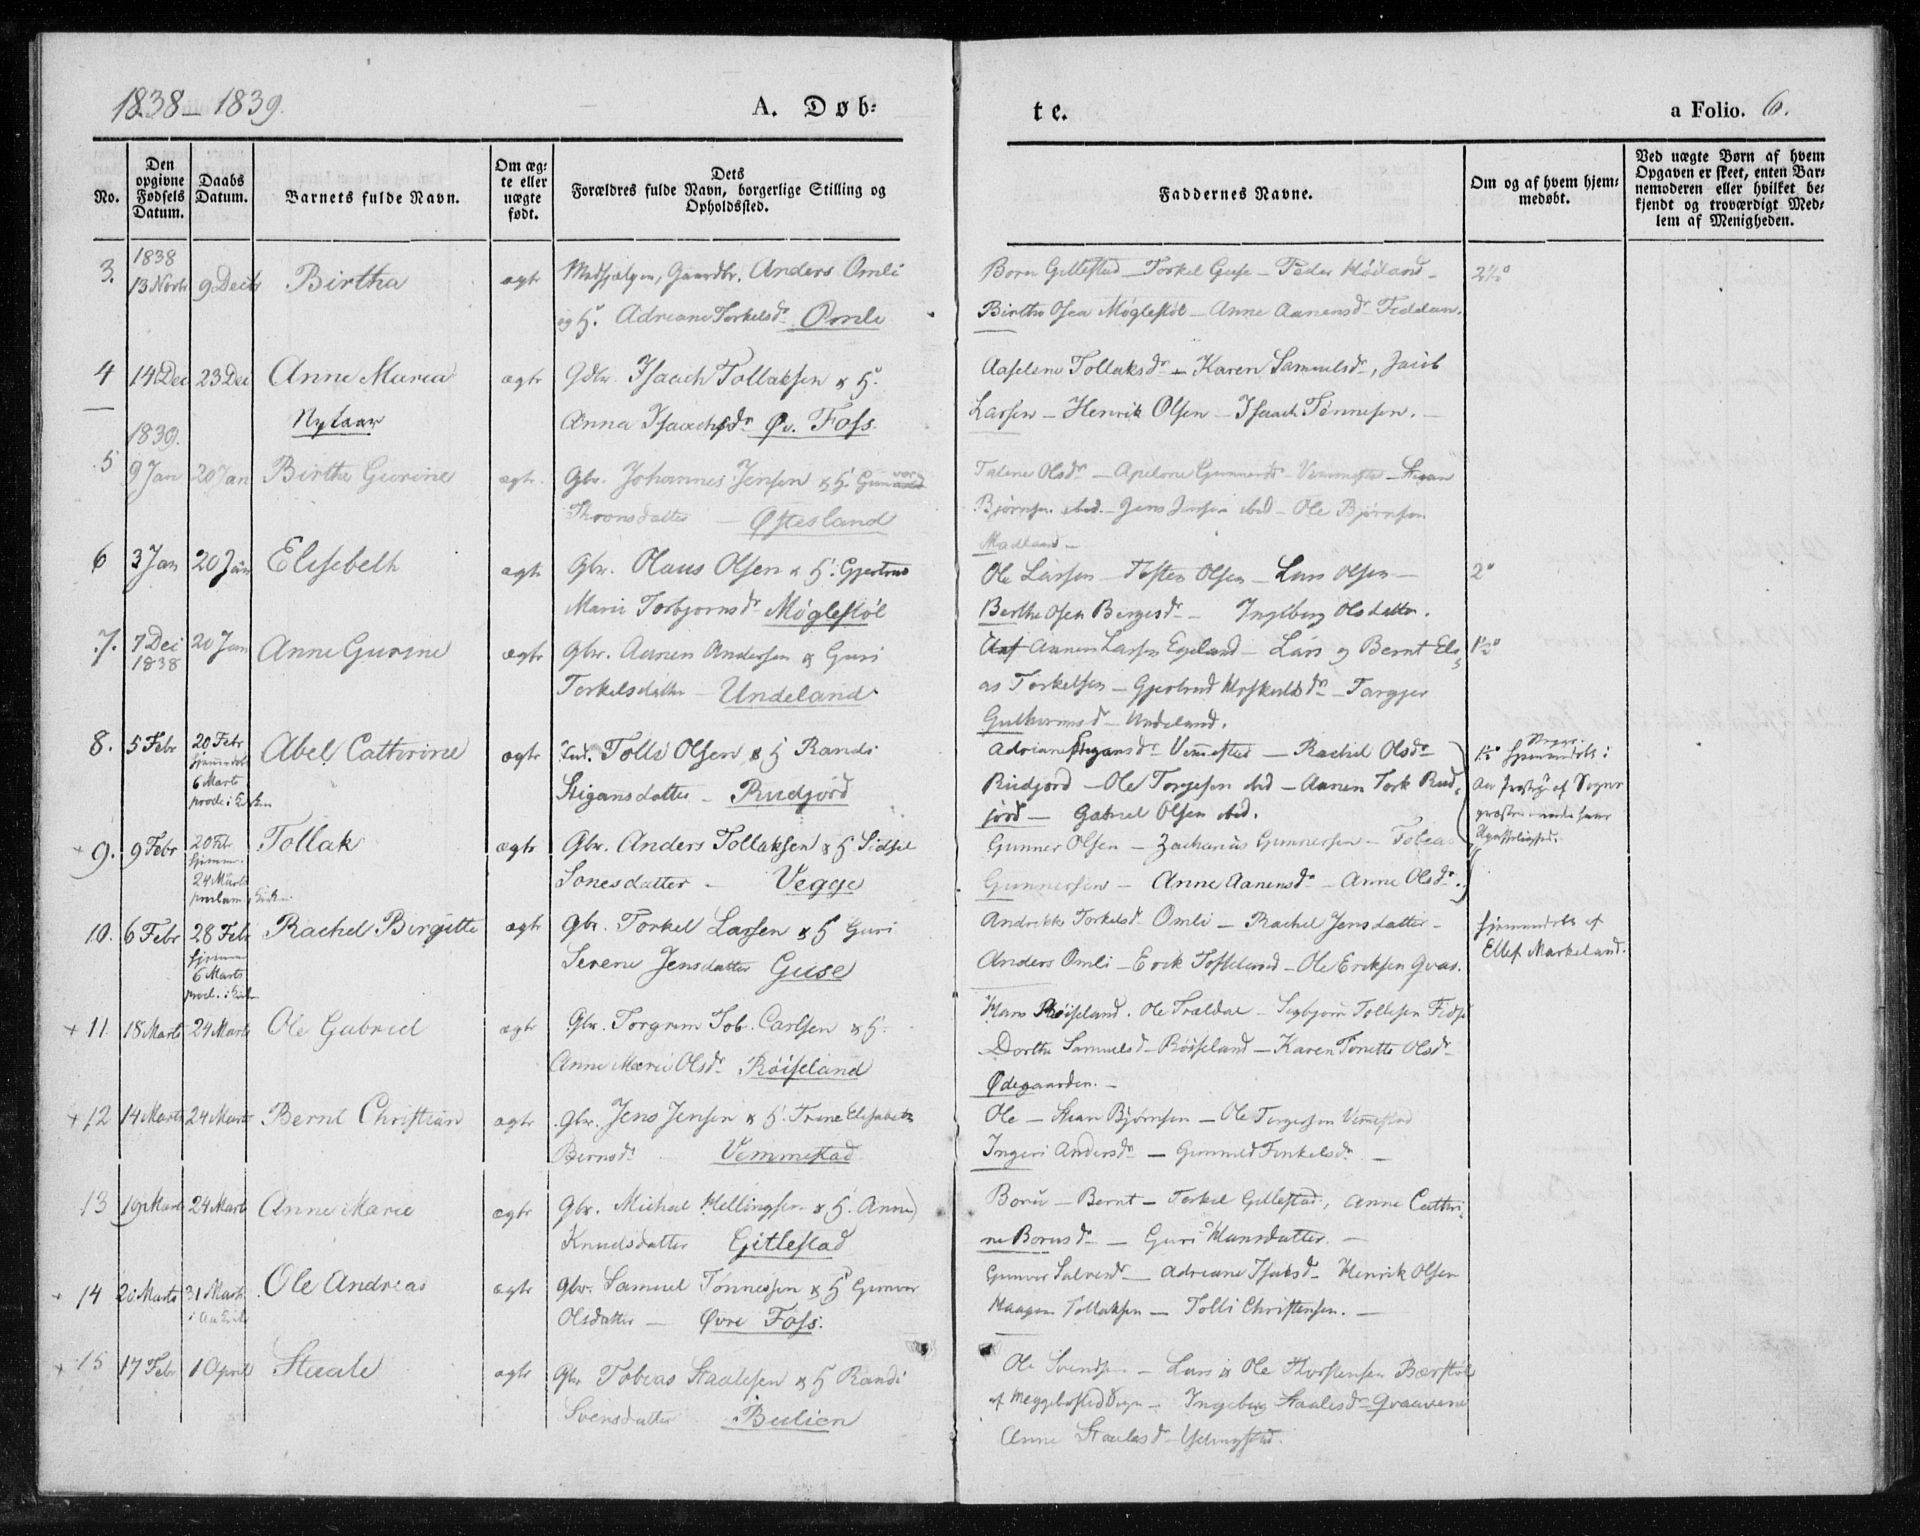 1838 – 1839.
A. Døb-
te.
a Folio. 6.
No.
Den opgivne Fødsels Datum.
Daabs Datum.
Barnets fulde Navn.
Om ægte eller uægte født.
Dets
Forældres fulde Navn, borgerlige Stilling og
Opholdssted.
Faddernes Navne.
Om og af hvem hjemmedøbt.
Ved uægte Børn af hvem
Opgaven er skeet, enten Bar-
nemoderen eller hvilket be-
kjendt og troværdigt Med-
lem af Menigheden.
1838
3. 13 Novbr 9 Decbr Birtha ægte Gaardbr. Anders Omli
og H. Adriane Torkelsdr Omli
Torkel Guse – Peder Høiland –
Birthe Møglestøl – Anne Aanensdr Feddan.
4 14 Dec 23 Dec Anne Maria ægte Gdbr. Isaach Tollaksen & H.
Nytaar
Anna Isaachsdr Øv. Foss.
Aaselene Tollaksdr – Karen Samuelsdr, Jacob
Larsen – Henrik Olsen – Isaach Tønnesen. –
1839.
5 9 Jan 20 Jan Birthe Gurine ægte. Gbr. Johannes Jensen & H. Gunvor
– Øftesland
Talene Olsdr – Gunnersdr – Vemmestad – Stian
Bjørnsen ibid – Jens Jensen ibid – Ole Bjørnsen
Madland –
6 3 Jan 20 Jan Elisebeth ægte Gbr. Olaus Olsen & H. Gjertrud
Marie Torbjørnsdr Møglestøl
Ole Larsen – Tosten Olsen – Lars Olsen –
Berthe Osen Bergesdr – Ingeborg Olsdatter.
2°
7. 7 Dec 1838 20 Jan Anne Gurine ægte Gbr. Aanen Andersen & Guri
Torkelsdatter – Undeland
Aanen Larsen Egeland – Lars og Bernt Eli-
as Torkelsen – Gjertrud – Targjer
Guthormsdr Undeland.
1½°
8. 5 Febr 20 Febr
hjemmedøbt
6 Marts
prode. i Kirken
Abel Cathrine ægte Ind. Tolli Olsen & H Randi
Stigansdatter – Rudjord
Adriane Stigansdr Vemmestad – Rachel Olsdr
Rudjord – Ole Torgesen ibd – Aanen Tork Rud-
jord – Gabriel Olsen ibid.
9. 9 Febr 20 Febr
hjemme
24 Marts
proclam i Kirken
Tollak ægte Gbr. Anders Tollaksen & H Sidsel
Tonesdatter – Vegge
Gunner Olsen – Zacharias Gunnersen – Tobias
Gunnersen – Anne Aanensdr – Anne Olsdr.
10. 6 Febr 28 Febr
hjemme
6 Marts
procl. i Kirken
Rachel Birgitte ægte Gbr. Torkel Larsen & H Guri
Serene Jensdatter Guse
Andrikke Torkelsdr Omli – Rachel Jensdatter –
Anders Omli – Erik Tofteland – Ole Eriksen Qvas.
hjemmedøbt af
Ellef Markeland.
+ 11. 18 Marts 24 Marts Ole Gabriel ægte Gbr. Torgrim Tob. Carlsen & H.
Anne Marie Olsdr Røiseland
Hans Røiseland. Ole Trældal – Sigbjørn Tollisen
Dorthe Samuelsd – Røiseland – Karen Tonette Olsdr
Ødegaarden. –
+ 12 14 Marts 24 Marts Bernt Christian ægte Gbr. Jens Jensen & H. Trine Elisabeth
Berntsdr Vemmestad
Ole – Stian Bjørnsen – Ole Torgersen Vemestad
Ingeri Andersdr – Gunnild Tinkelsdr –
13 19 Marts 24 Marts Anne Marie ægte Gbr. Michael Hellingsen & H. Anne
Knudsdatter Gitlestad
Boru – Bernt – Torkel Gitlestad, Anne Cathri-
ne Borusdr – Guri Hansdatter. –
+ 14 20 Marts 31 Marts
i Aa Kirke
Ole Andreas ægte Gbr. Samuel Tønnessen & H Gunvor
Olsdatter – Øvre Foss.
Gunvor Salvesdr – Adriane Isaksd – Henrik Olsen
Haagen Tollaksen – Tolli Christensen. –
+ 15 17 Febr 1 April Staale ægte Gbr Tobias Staalesen & H Randi
Svensdatter Bulien
Ole Svendsen – Lars & Ole Thorstensen Bærstøl
af Heggebosted Sogn – Ingeborg Staalesdr Qvavene
Anne Staalesdr